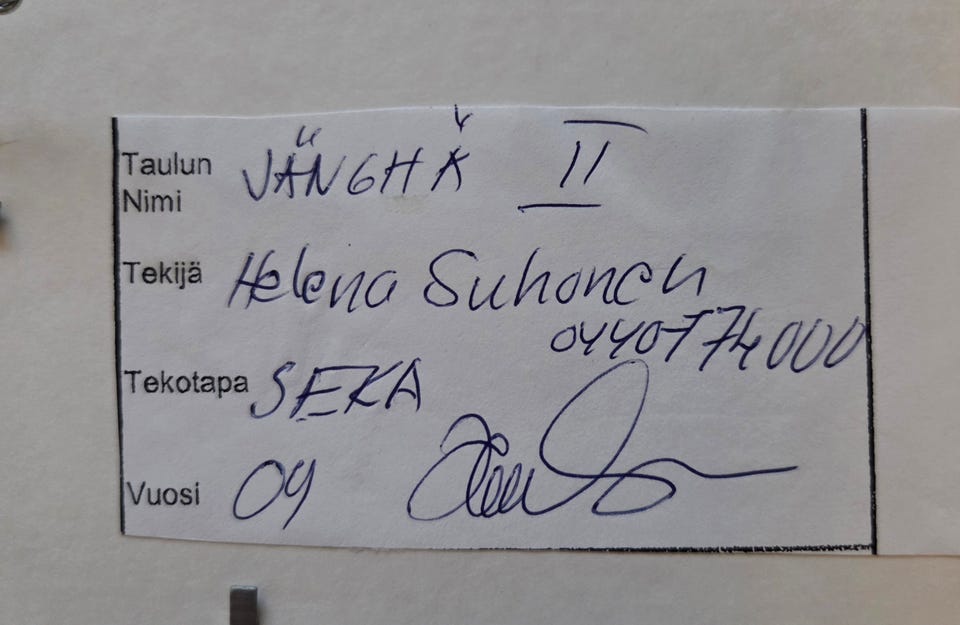 Taulun Nimi JÄNGHÄ II
Tekijä Helena Suhonen
0440774000
Tekotapa SEKA
Vuosi 09